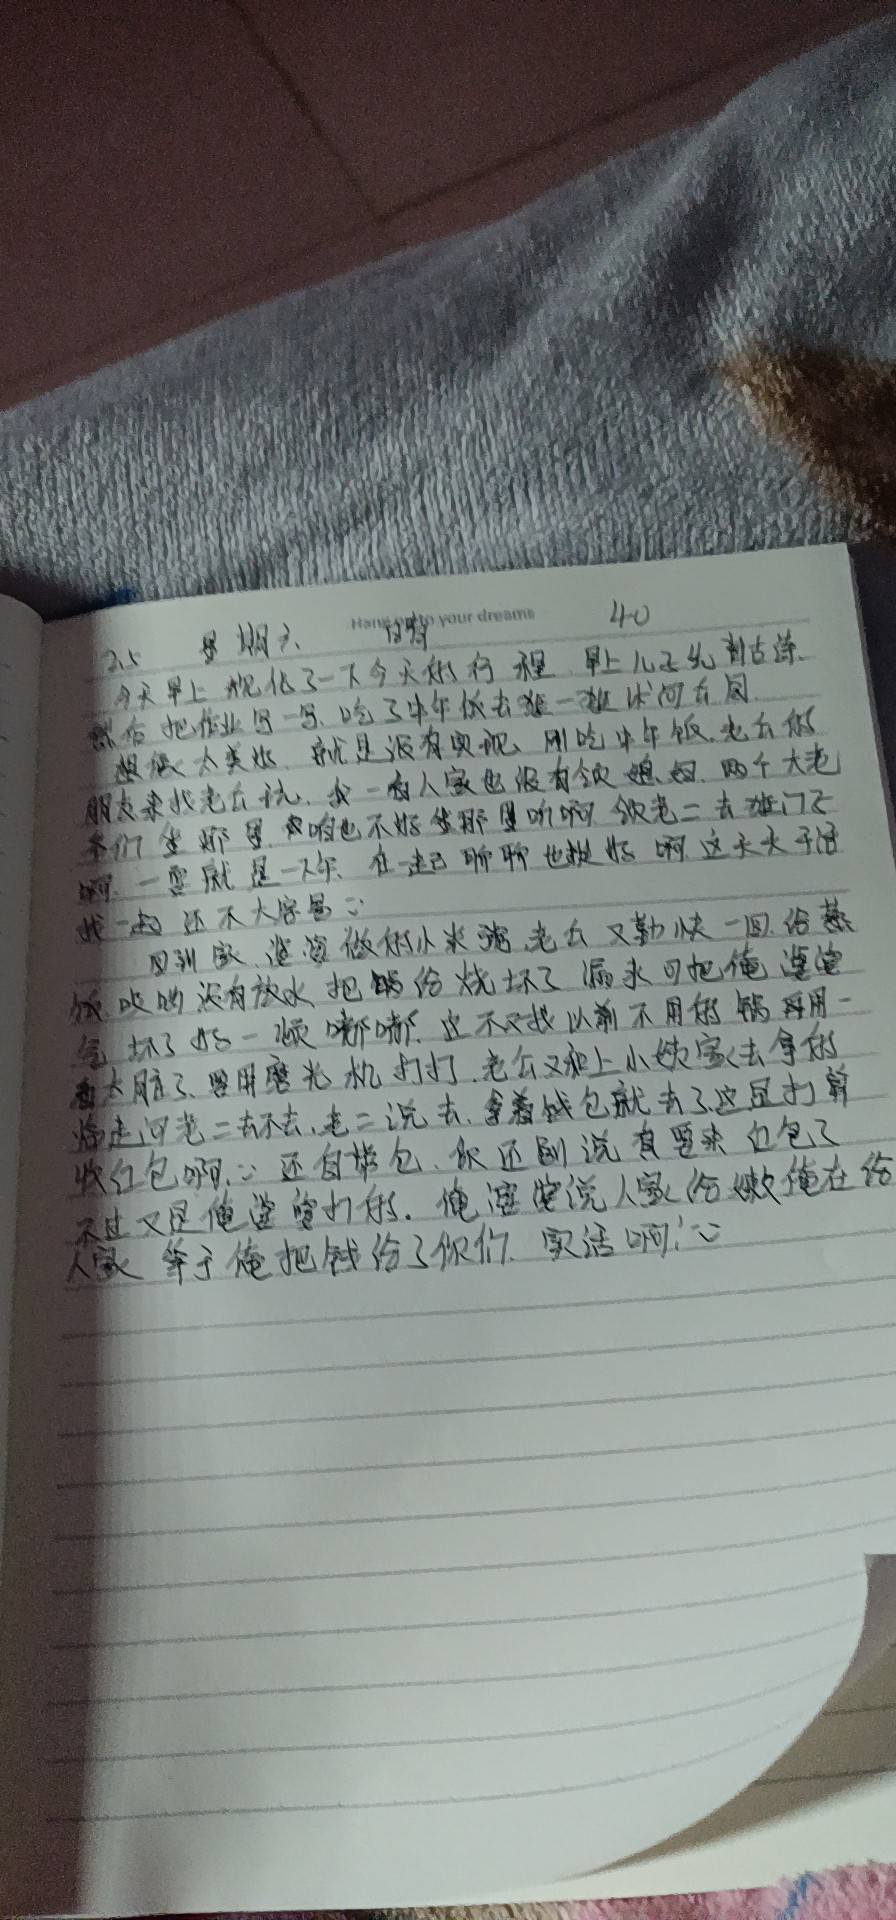 Hang on to your dreams
2.5 星期六 日清 40
今天早上 规化了一下今天的行程 早上儿子先 古诗.
然后把作业写一写. 吃了中午饭去 一 沭河右岗.
想像太美好. 就是没有实现. 刚吃中午饭. 老公的
朋友来找老公玩. 我一看人家也没有领媳妇. 两个大老
爷们坐那里. 咱也不好坐那里听啊 领老二去 门子
啊. 一耍就是一下午. 在一起聊聊也挺好啊. 这天天干活
找一起还不大容易
回到家 婆婆做的小米粥. 老公又勤快一回. 给蒸
饭. 哎哟没有放水 把锅给烧坏了 漏水 可把俺婆婆
气坏了 好一顿嘟嘟. 这不又找以前不用的锅再用一
看太脏了. 要用磨光机打打. 老公又和上小姨家去拿的
临走问老二去不去. 老二说去. 拿着钱包就去了. 这是打算
收红包啊. 还自带包. 你还别说真要来包了
不过又是俺婆婆打的. 俺婆婆说人家给 俺在给
人家 等于俺把钱给了你们. 实话啊!